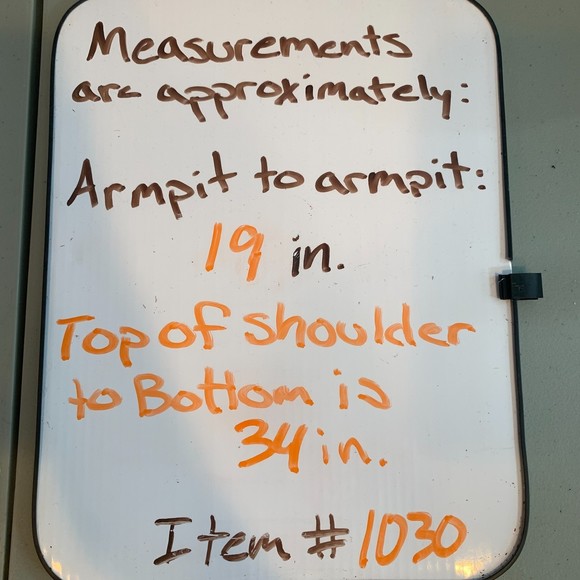 Measurements
are approximately:
Armpit to armpit:
19 in.
Top of shoulder
to Bottom is
34 in.
Item #1030